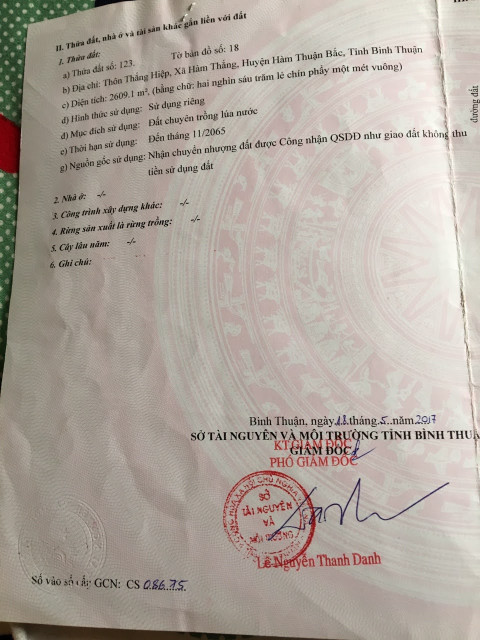 II. Thửa đất, nhà ở và tài sản khác gắn liền với đất
1. Thửa đất:
a) Thửa đất số: 123. Tờ bản đồ số: 18
b) Địa chỉ: Thôn Thắng Hiệp, Xã Hàm Thắng, Huyện Hàm Thuận Bắc, Tỉnh Bình Thuận
c) Diện tích: 2609.1 m², (bằng chữ: hai nghìn sáu trăm lẻ chín phẩy một mét vuông)
d) Hình thức sử dụng: Sử dụng riêng
đ) Mục đích sử dụng: Đất chuyên trồng lúa nước
e) Thời hạn sử dụng: Đến tháng 11/2065
g) Nguồn gốc sử dụng: Nhận chuyển nhượng đất được Công nhận QSDĐ như giao đất không thu
tiền sử dụng đất
2. Nhà ở: -/-
3. Công trình xây dựng khác: -/-
4. Rừng sản xuất là rừng trồng: -/-
5. Cây lâu năm: -/-
6. Ghi chú:
đường đất
Bình Thuận, ngày 18 tháng 5 năm 2017
SỞ TÀI NGUYÊN VÀ MÔI TRƯỜNG TỈNH BÌNH THUẬ
KT.GIÁM ĐỐC
GIÁM ĐỐC
PHÓ GIÁM ĐỐC
SỞ
TÀI NGUYÊN
VÀ
MÔI TRƯỜNG
Lê Nguyễn Thanh Danh
Số vào sổ cấp GCN: CS 08675